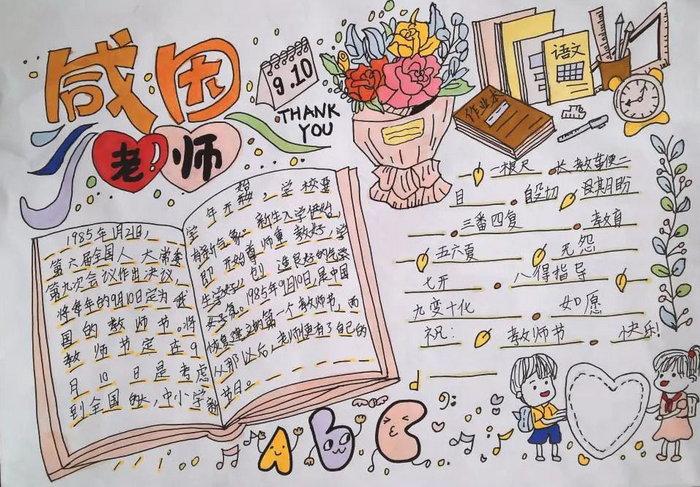 感因
老师
9.10
THANK
YOU
语文
作业本
1985年1月21日,
第六届全国人大常委
第九次会议作出决议,
将每年的9月10日定为我
国的教师节。将
教师节定在9
月10日是考虑
到全国大,中小学新
学年开始,学校要
有新气象。新生入学伊始,
即开始尊师重教好,
生学好,创造良好的气氛
1985年9月10日,是中国
恢复建立的第一个教师节,而
从那以后,老师便有了自己的
节日。
一根尺 长教辈使二
目 自殷切 设期盼
三番四复 教育
五六夏 无怨
七开 八得指导
九变十化 如愿
祝: 教师节 快乐!
A b C